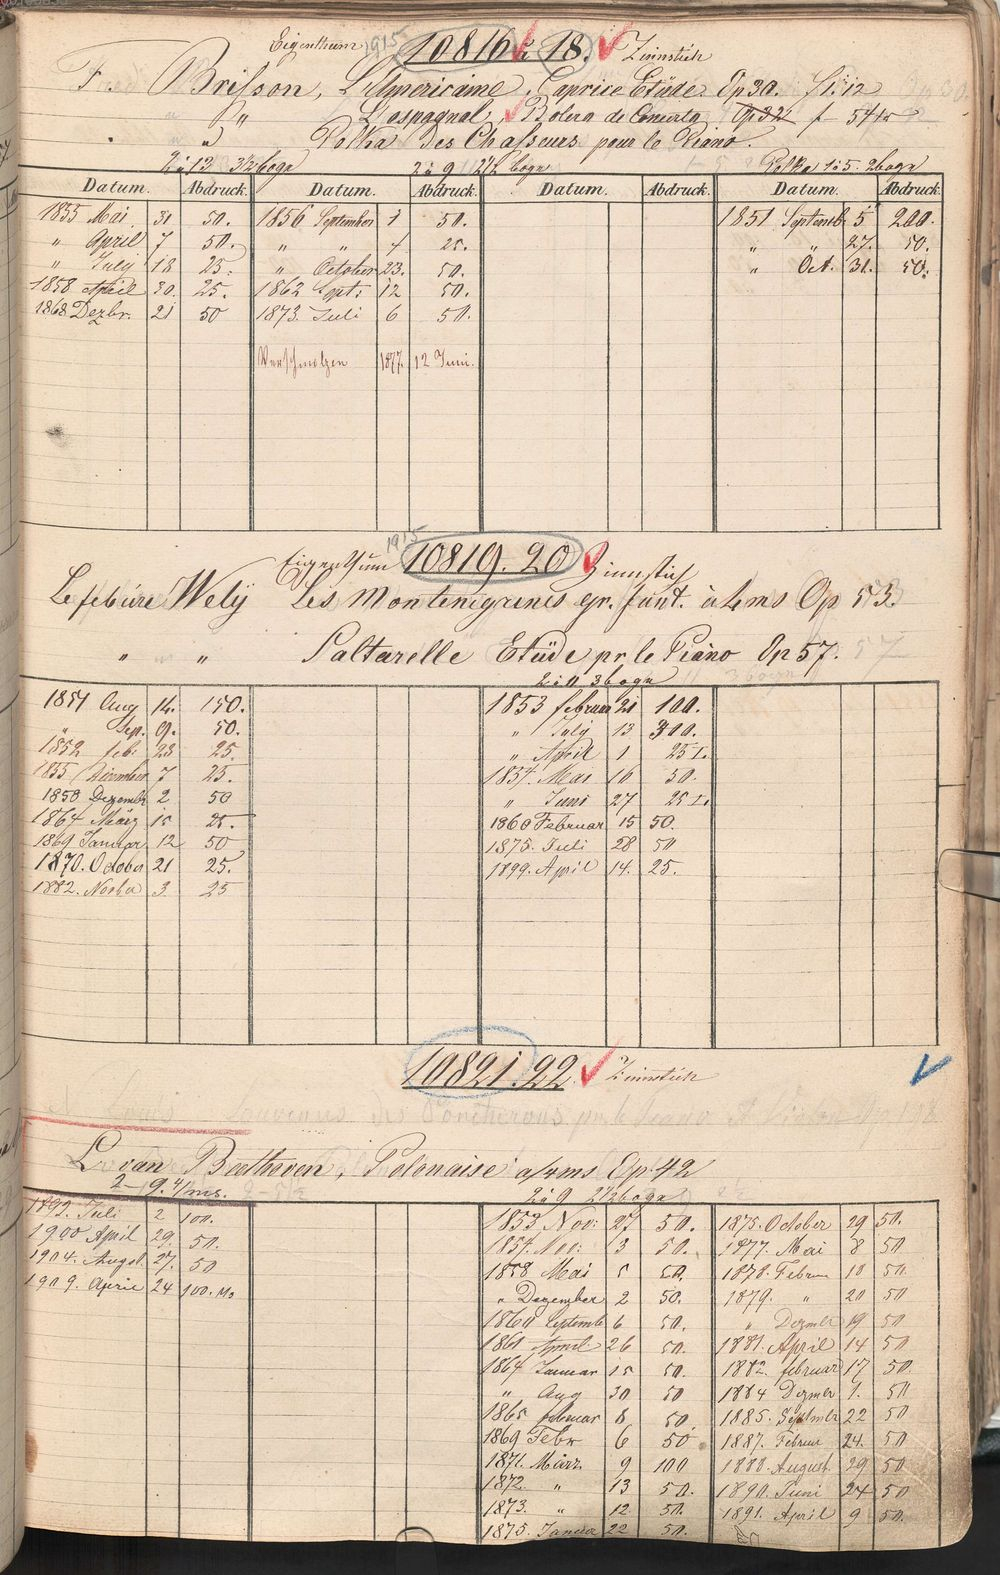 Eigenthum 1915 10816 18. Zinnstich
Brisson, L'Americaine. Caprice Etüde. Op 30. f 1.12
" " L'espagnol, Bolero de Concerto Op 32 f 54
" Polka des Chasseurs pour le Piano.
2 à 12 3½ bogn 2 à 9 2½ bogn Polka 1 à 5. 2 bogn
Datum. Abdruck. Datum. Abdruck. Datum. Abdruck. Datum. Abdruck.
1855 Mai 31 50. 1856 September 1 50. 1851 Septemb. 5 200.
" April 7 50. " " 7 25. " " 27. 50.
" July 18 25. " October 23. 50. " Oct. 31. 50.
1858 April 30. 25. 1862 Sept. 12 50.
1868 Dezbr. 21 50 1873. Juli 6 50.
Verschmolzen 1877. 12 Juni.
Eigenthum 1915 10819. 20 Zinnstich
Lefebúre Wely Les Montenigrins gr. fant. à 4 ms Op 53.
" " Saltarelle Etüde pr. le Piano Op 57.
2 à 11 3 bogn
1851 Aug 14. 150. 1853 februar 21 100.
" Sep. 9. 50. " July 13 300.
1852 feb. 23 25. " April 1 25 I.
1855 December 7 25. 1857. Mai 16 50.
1858 Dezembr 2 50 " Juni 27 25 I.
1864 März 15 25. 1860 Februar 15 50.
1869 Januar 12 50 1875. Juli 28 50
1870. October 21 25. 1899. April 14. 25.
1882. Novbr 3. 25
10821. 22. Zinnstich
L. van Beethoven, Polonaise a/4 ms Op. 42
2-19. 4/ms. 2 à 9 2½ bogn
1892. Juli 2 100. 1853 Nov. 27 50. 1875. October 29 50.
1900 April 29. 50. 1857. Nov. 3 50. 1877. Mai 8 50
1904. August. 27. 50 1858 Mai 5 50. 1878. Februar 18 50
1909. April 24 100. " Dezember 2 50. 1879. " 20 50
1860 Septemb 6 50. " Dezmbr 19 50
1861 April 26 50. 1881. April 14 50
1864 Januar 15 50. 1882. februar 17 50.
" Aug 30 50 1884 Dezmbr 1. 50
1865 februar 8 50. 1885. Septmbr 22 50
1869 Febr 6 50 1887. Februar 24. 50
1871. März 9 100 1888. August. 29 50
1872. " 13 50. 1890. Juni 24 50
1873. " 12 50. 1891. April 9 50.
1875. Januar 22 50.